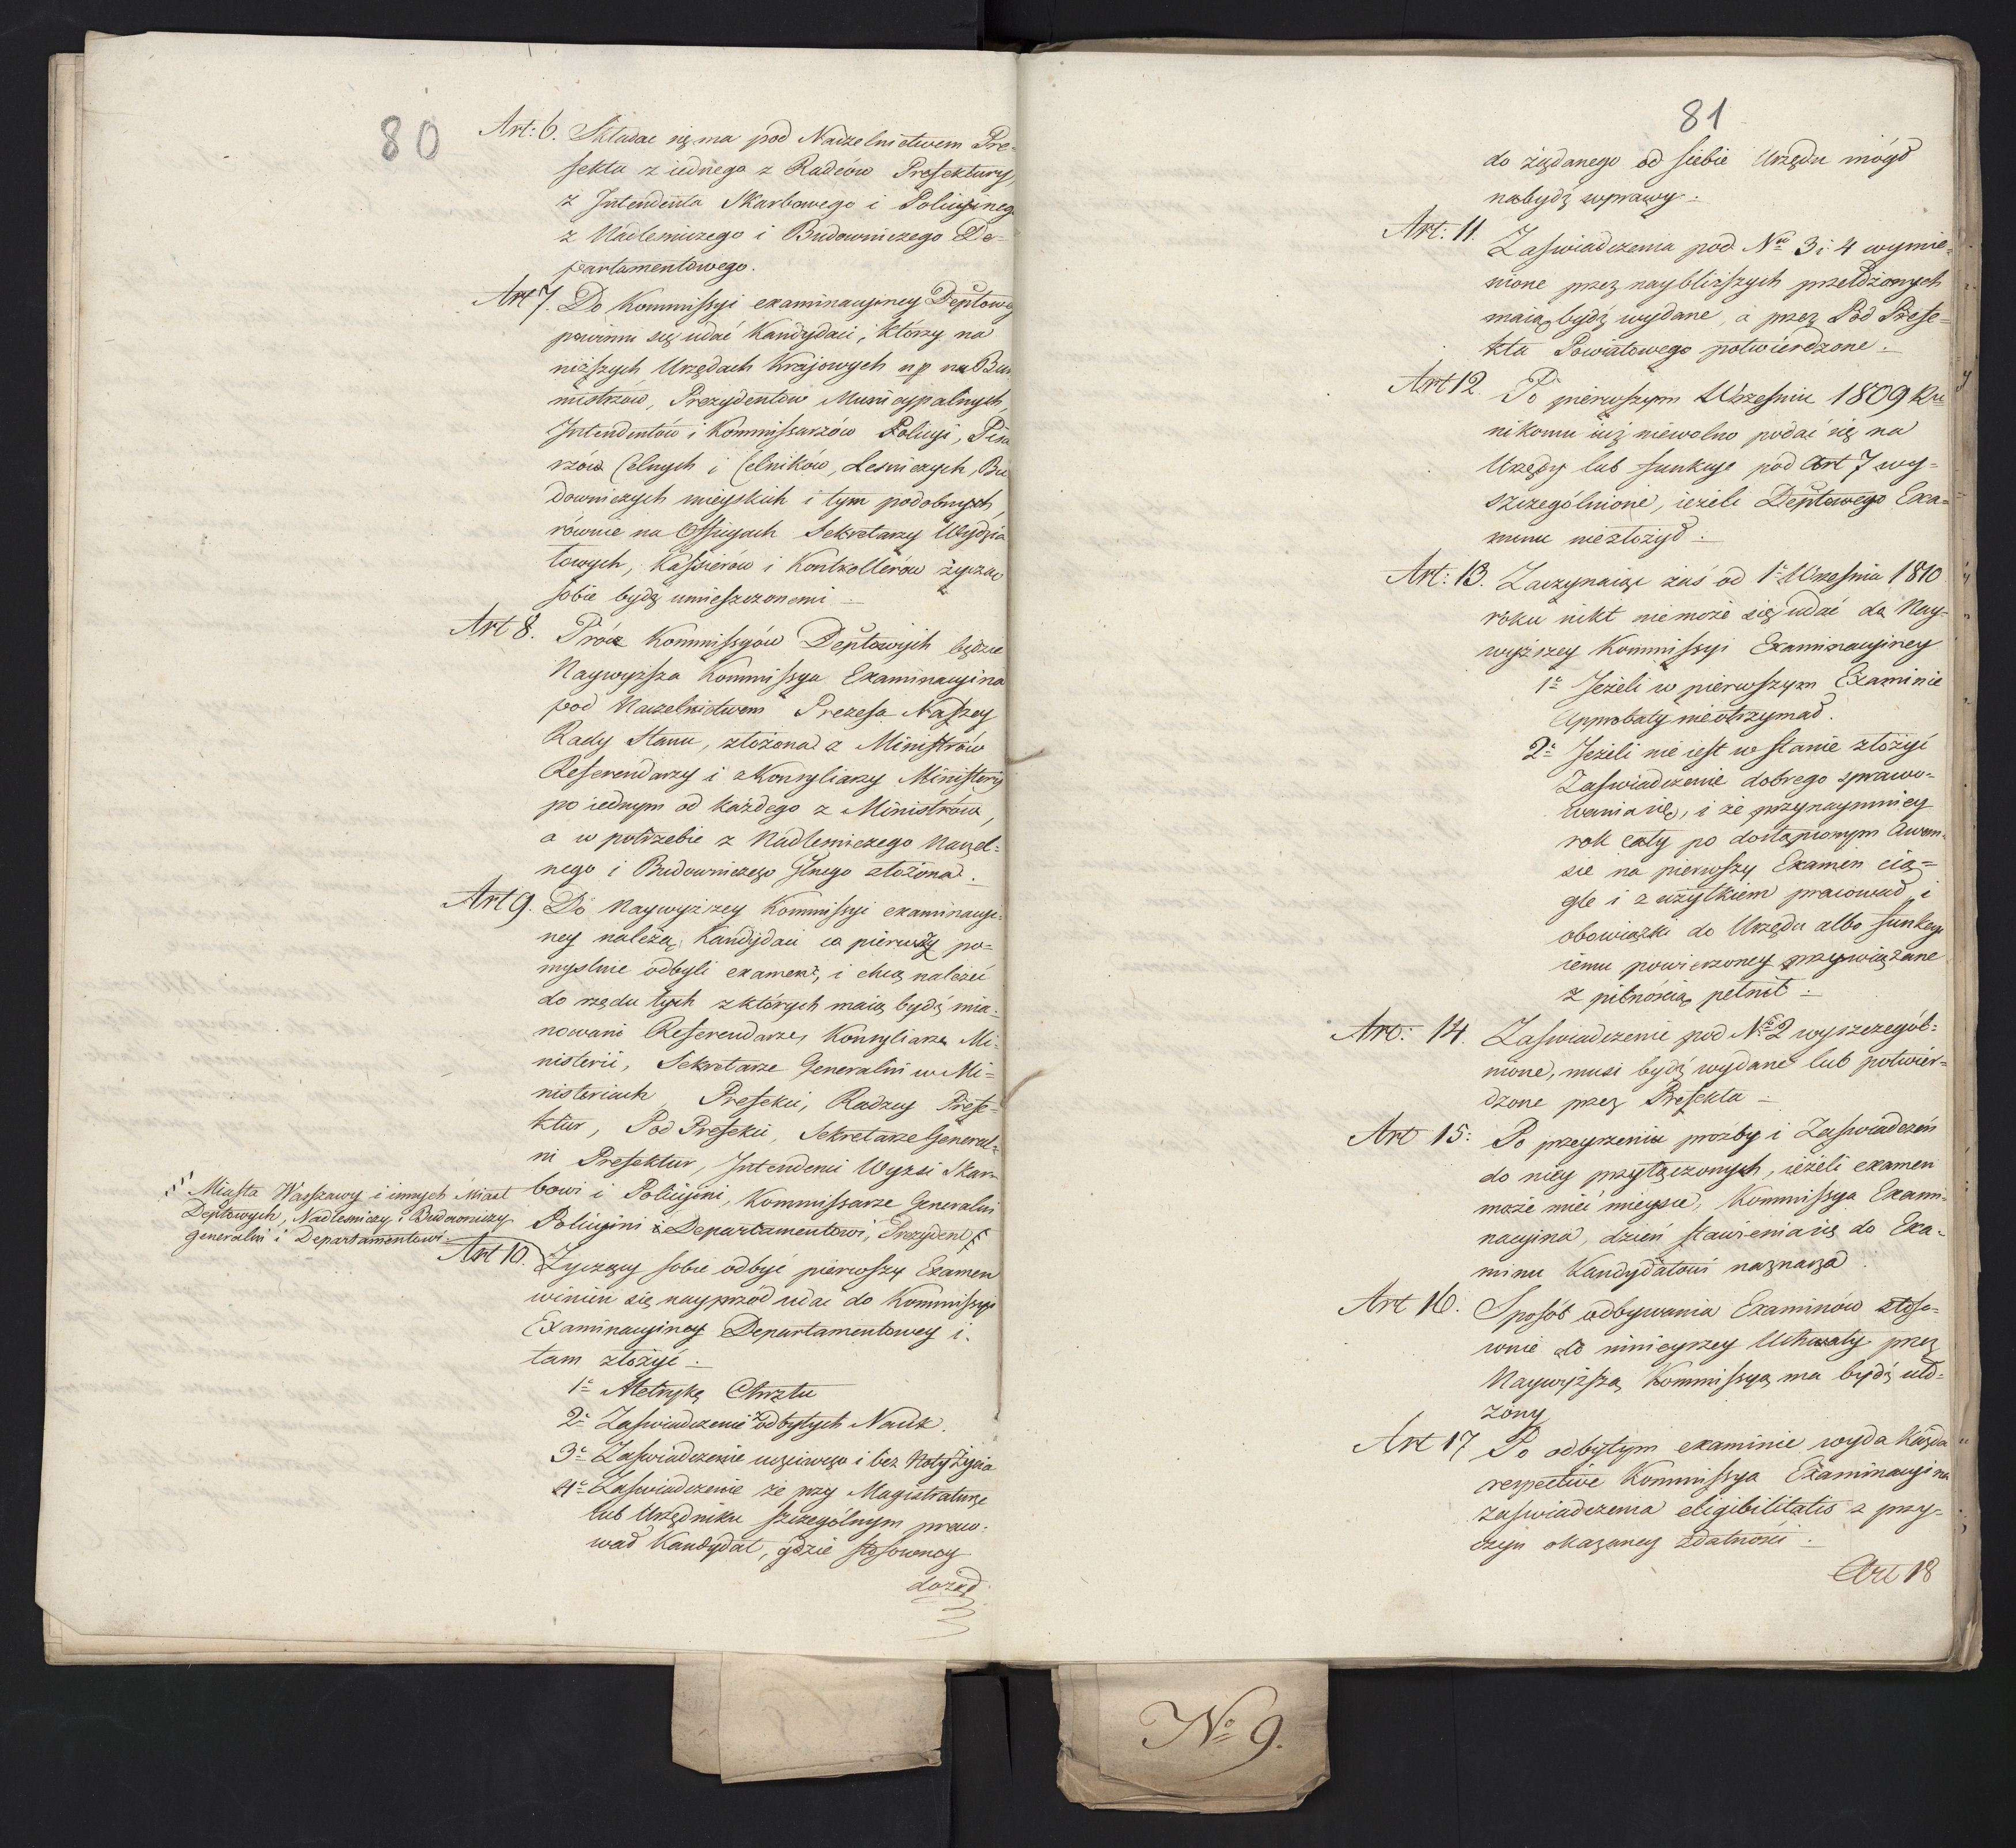 80
Art: 6. Składać się ma pod Naczelnictwem Pre-
fekta z iednego z Radców Prefektury,
z Intendenta Skarbowego i Policyineg
z Nadleśniczego i Budowniczego De-
partamentowego.
Art 7. Do Kommissyi examinacyiney Deptowey
powinni się udać Kandydaci, którzy na
niższych Urzędach Krajowych np na Bur
mistrzów, Prezydentów Municypalnych,
Intendentów i Kommissarzów Policyi, Pisa
rzów Celnych i Celników, Leśniczych, Bu
downiczych mieyskich i tym podobnych,
równie na Officyach Sekretarzy Wydzia
łowych, Kassierów i Kontrollerów życzac
sobie bydź umieszczonemi —
Art 8. Prócz Kommissyów Deptowych będzie
Naywyższa Kommissya Examinacyina
pod Naczelnictwem Prezesa Naszey
Rady Stanu, złożona z Ministrów
Referendarzy i z Konsyliarzy Ministeryi
po iednym od każdego z Ministrów,
a w potrzebie z Nadleśniczego Naczel-
nego i Budowniczego Glnego złożona.
Art 9. Do Naywyższey Kommissyi examinacyi-
ney należą, Kandydaci co pierwszy po-
myślnie odbyli examen, i chcą należeć
do rzędu tych z których maią bydź mia-
nowani Referendarze, Konsyliarze Mi-
nisterii, Sekretarze Generalni w Mi-
nisteriach, Prefekci, Radzcy Prefe-
ktur, Pod Prefekci, Sekretarze General-
ni Prefektur, Intendenci Wyżsi Skar-
bowi i Policyini, Kommissarze Generalni
Policyini i Departamentowi, Prezydenci
Miasta Warszawy i innych Miast
Deptowych, Nadleśniczy i Budowniczy
generalni i Departamentowi.
Art 10. Życzący sobie odbyć pierwszy Examen
winien się nayprzód udać do Kommissyi
Examinacyiney Departamentowey i
tam złożyć —
1e Metrykę Chrztu
2e Zaświadczenie z odbytych Nauk.
3e Zaświadczenie uczciwego i bez Noty życia
4e Zaświadczenie że przy Magistraturze
lub Urzędniku szczególnym praco-
wał Kandydat, gdzie stosowney
dożąd
81
do żądanego od siebie Urzędu mógł
nabydź wprawy.
Art: 11. Zaświadczenia pod No 3 i 4 wymie-
nione przez naybliższych przełożonych
maią bydź wydane, a przez Pod Prefe-
kta Powiatowego potwierdzone.
Art 12. Po pierwszym Wrześniu 1809 Ru
nikomu iuż niewolno podać się na
Urzędy lub funkcye pod Art 7 wy-
szczególnione, ieżeli Deptowego Exa-
minu niezłożył.
Art: 13. Zaczynaiąc zaś od 1e Września 1810
roku nikt niemoże się udać do Nay-
wyższey Kommissyi Examinacyiney
1e Jeżeli w pierwszym Examinie
Approbaty nieotrzymał.
2e Jeżeli nie iest w stanie złożyć
Zaświadczenie dobrego sprawo-
wania się, i że przynaymniey
rok cały po dostąpionym Awan-
sie na pierwszy Examen cią-
gle i z użytkiem pracował i
obowiązki do Urzędu albo funkcyi
iemu powierzoney przywiązane
z pilnością pełnił.
Art: 14. Zaświadczenie pod No 2 wyszczegól-
nione, musi bydź wydane lub potwier-
dzone przez Prefekta —
Art 15: Po przeyrzeniu prozby i Zaświadczeń
do niey przyłączonych, ieżeli examen
może mieć mieysce, Kommissya Exami-
nacyina, dzień stawienia się do Exa-
minu Kandydatowi naznacza.
Art 16. Sposób odbywania Examinów stoso-
wnie do ninieyszey Uchwały przez
Naywyższą Kommissyą ma bydź uło-
żony
Art 17 Po odbytym examinie wyda każda
respective Kommissya Examinacyina
zaświadczenia eligibilitatis z przy-
czyn okazaney zdatności.
Art 18
No 9.